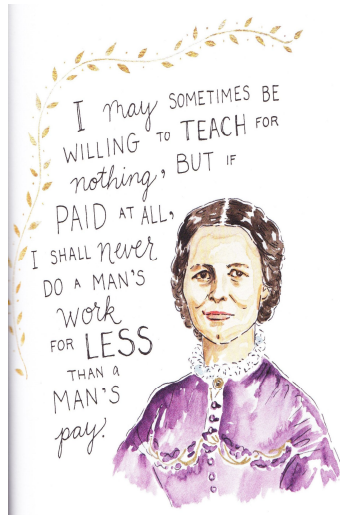 I may SOMETIMES BE
WILLING TO TEACH FOR
nothing, BUT IF
PAID AT ALL,
I SHALL never
DO A MAN'S
work
FOR LESS
THAN A
MAN'S
pay.